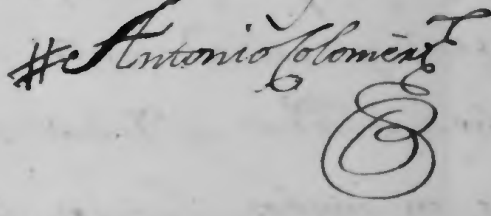 Antonio Colomèr